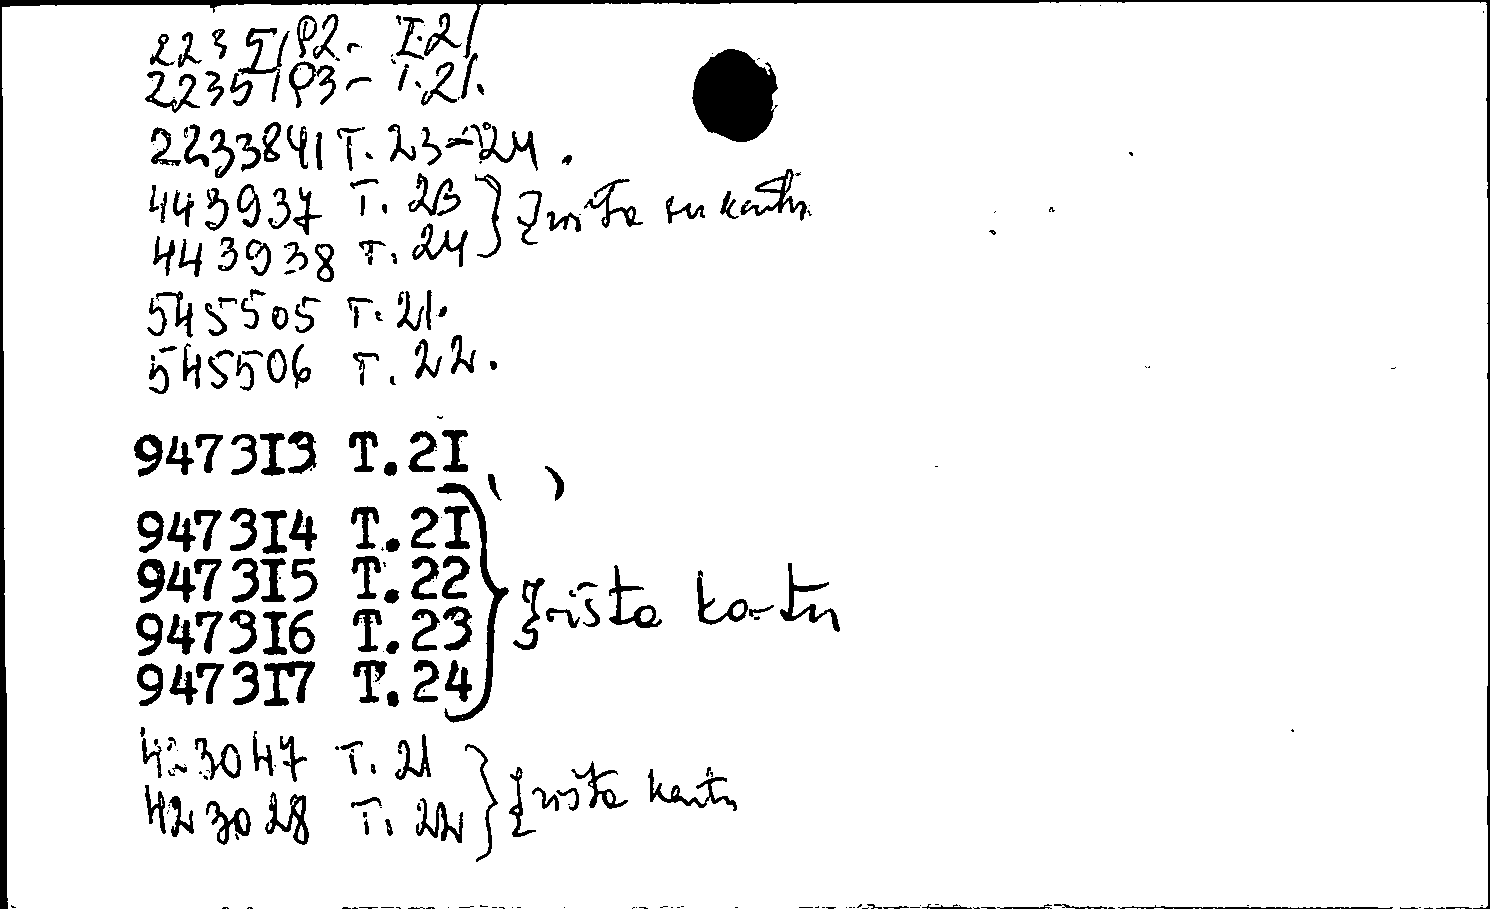 2235192- T.21
2235193- T.21.
2233841 T. 23-24.
443937 T. 23
443938 T. 24
įrišta su kartu
545505 T. 21.
545506 T. 22.
9473I3 T.2I
9473I4 T.2I
9473I5 T.22
9473I6 T.23
9473I7 T.24
įrišta kartu
423047 T. 21
423028 T. 22
įrišta kartu